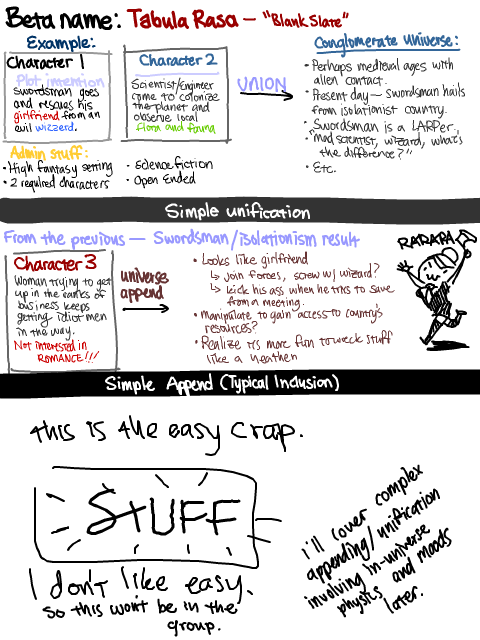 Beta name: Tabula Rasa - "Blank Slate"
Example:
Character 1
Plot intention
Swordsman goes
and rescues his
girlfriend from an
evil wizzerd.
Admin stuff:
• High fantasy setting
• 2 required characters
Character 2
Scientist/Engineer
come to colonize
the planet and
observe local
flora and fauna
• Science fiction
• Open Ended
UNION
Conglomerate Universe:
• Perhaps medieval ages with
alien contact.
• Present day — Swordsman hails
from isolationist country.
• Swordsman is a LARPer.
"mad scientist, wizard, what's
the difference?"
• Etc.
Simple unification
From the previous — Swordsman/isolationism result
Character 3
Woman trying to get
up in the ranks of
business keeps
getting idiot men
in the way.
Not interested in
ROMANCE!!!
universe
append
• Looks like girlfriend
↳ join forces, screw w/ wizard?
↳ kick his ass when he tries to save
from a meeting.
• Manipulate to gain access to country's
resources?
• Realize it's more fun to wreck stuff
like a heathen
RARARA
Simple Append (Typical Inclusion)
this is the easy crap.
STUFF
I don't like easy.
so this won't be in the
group.
I'll cover complex
appending/unification
involving in-universe
physics and moods
later.